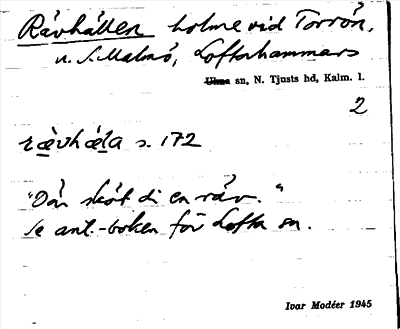 Rävhällen holme vid Torrön,
n. S. Malmö, Loftahammars
Ukna sn, N. Tjusts hd, Kalm. l.
2
rävhäla s. 172
"Dän sköt di en räv."
Se ant.-boken för Lofta sn.
Ivar Modéer 1945